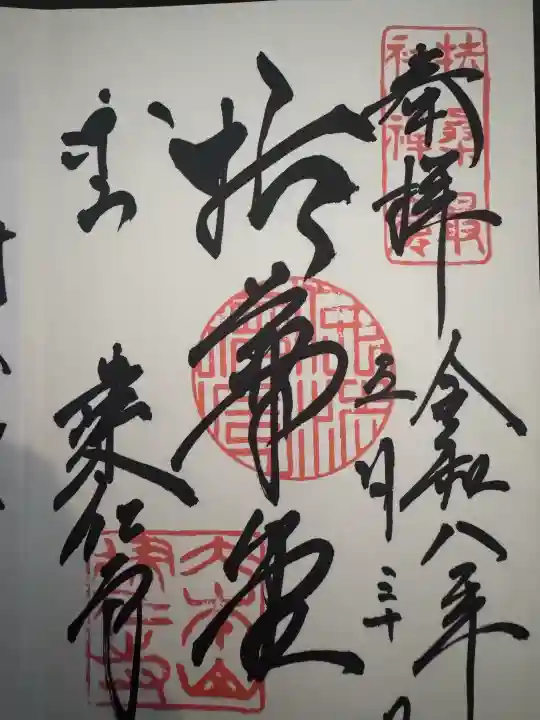 扶桑最
初禅窟
奉拝
令和八年
五月三十日
拈華堂
東山
建仁寺
大本山
建仁寺